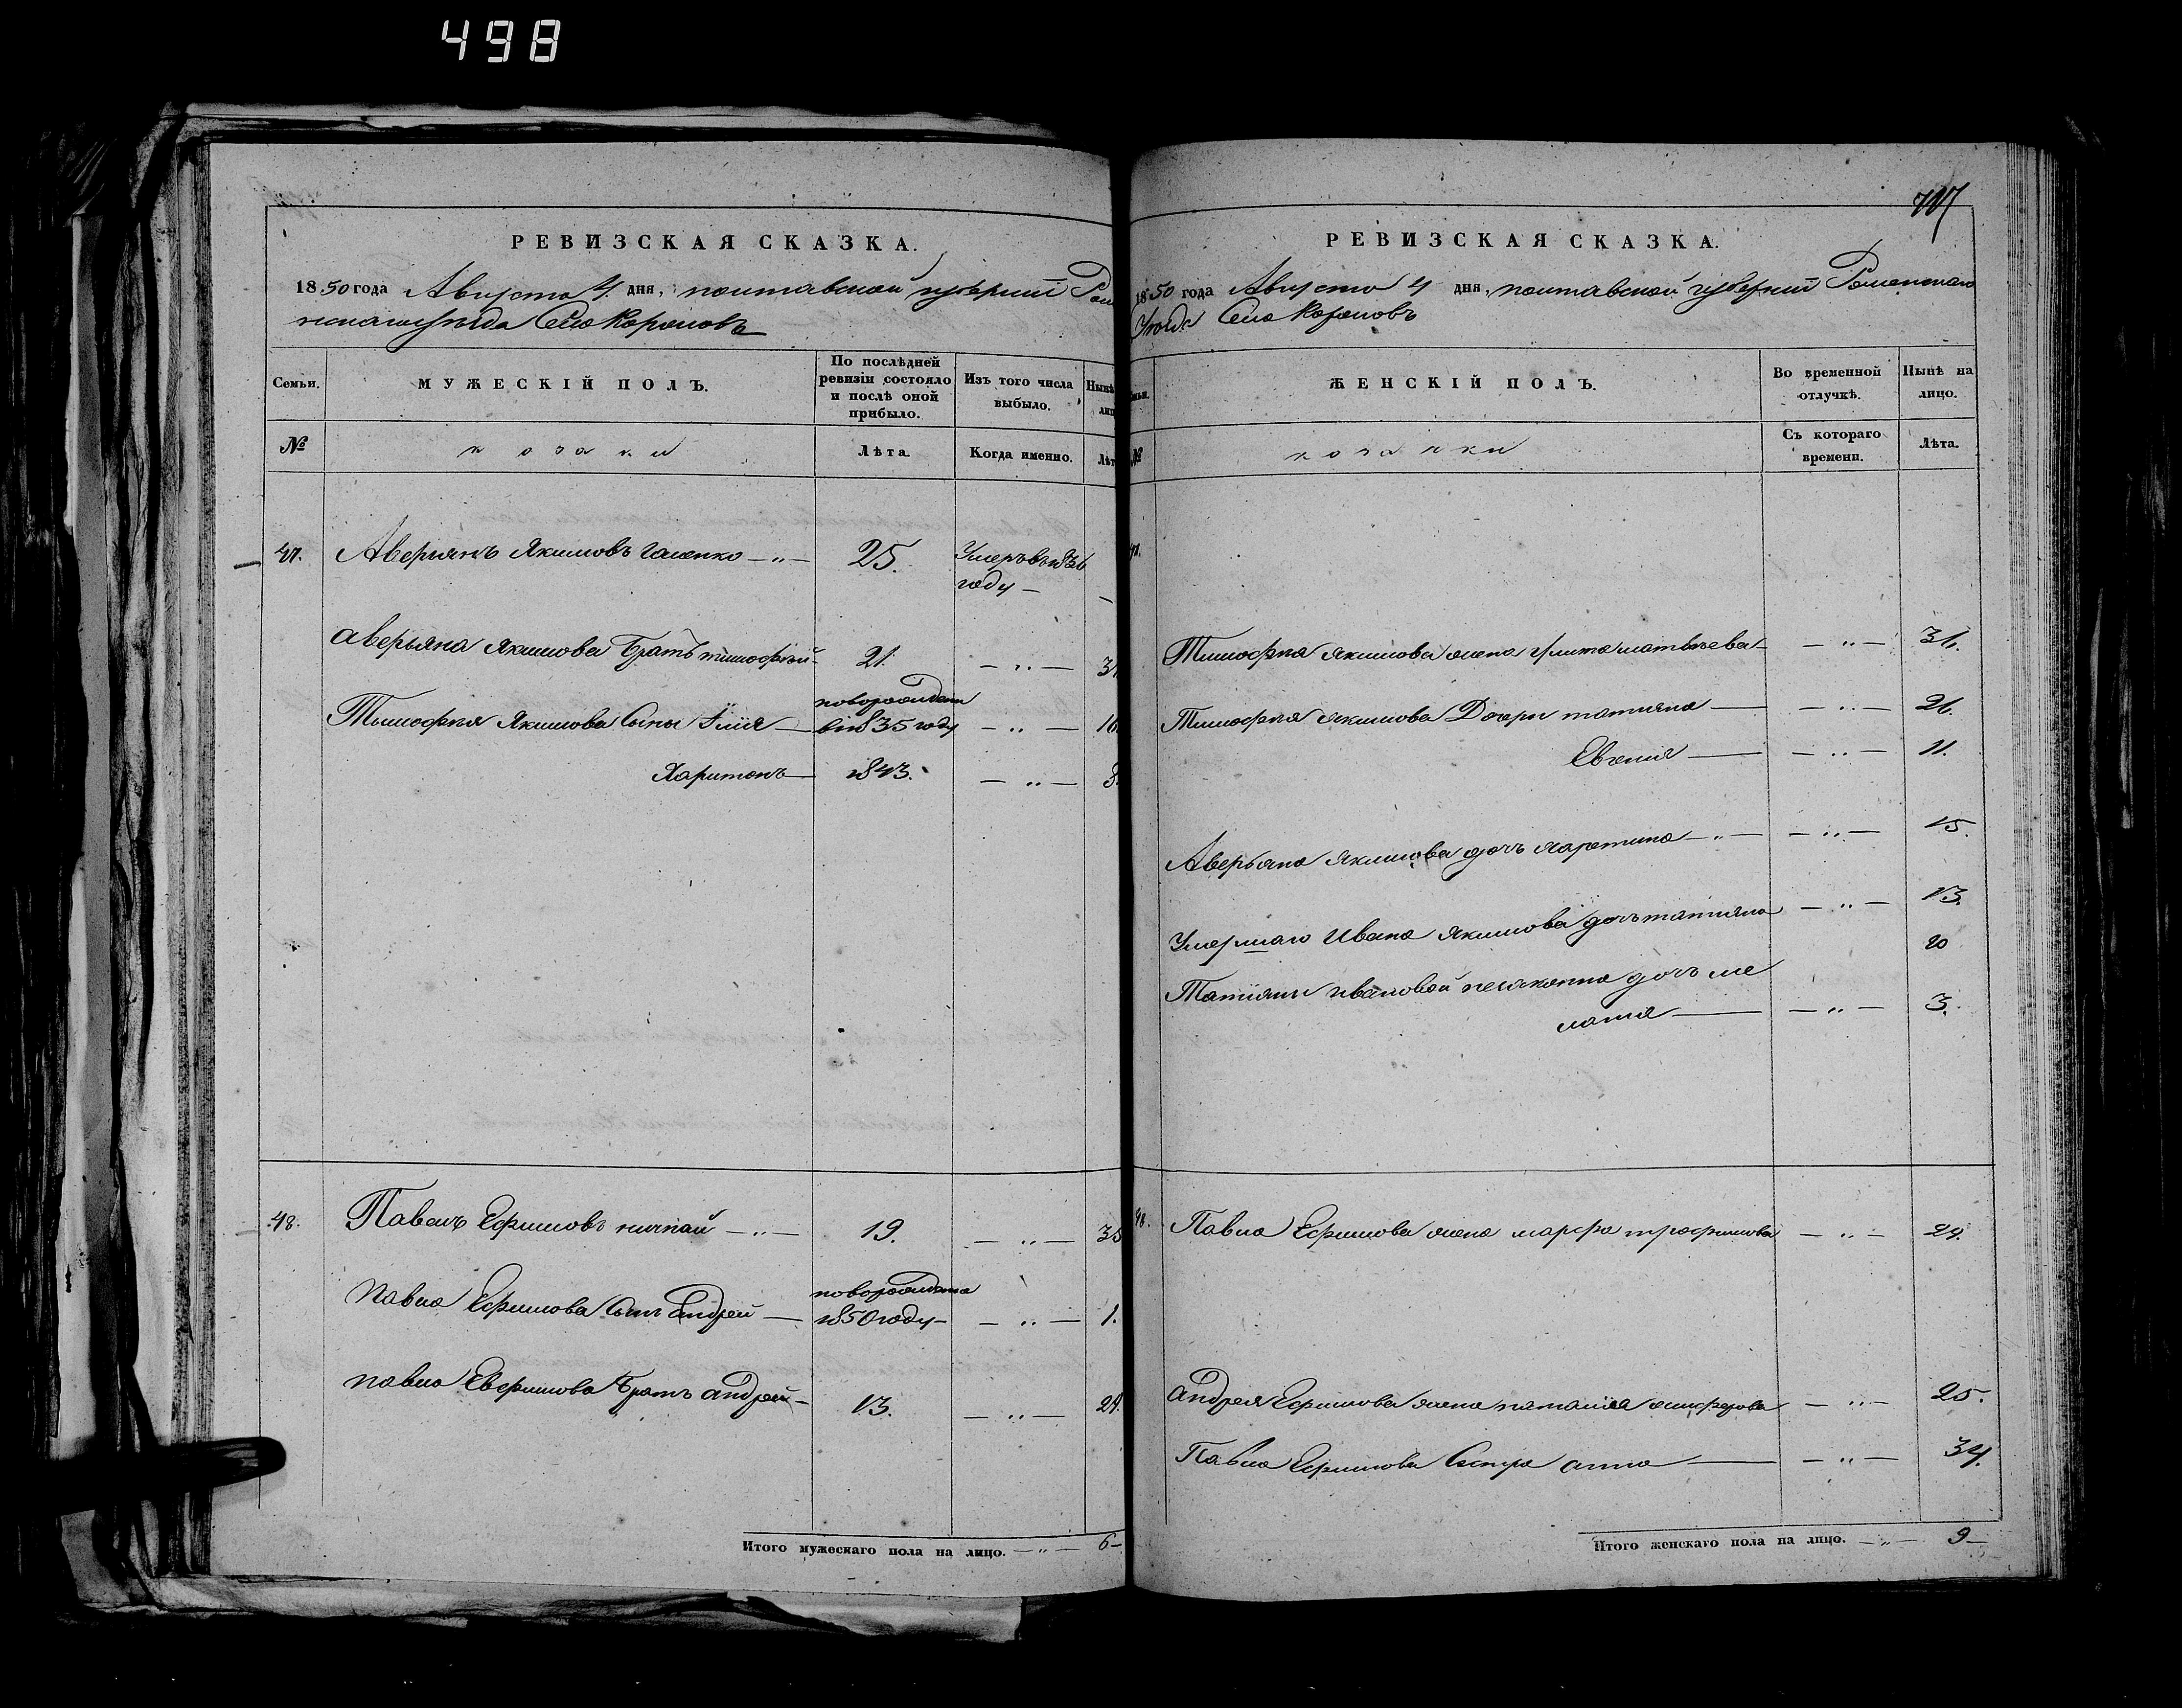 498
РЕВИЗСКАЯ СКАЗКА.
1850 года Августа 4. дня, полтавской губернии Ром
Села Корововъ
Семьи.
МУЖЕСКІЙ ПОЛЪ.
По послѣдней ревизіи состояло и послѣ оной прибыло.
Изъ того числа выбыло.
Нынѣ
№
козаки
Лѣта.
Когда именно.
Лѣт
47. Аверьянъ Якимовъ —"— 25. Умеръ въ 1836
году —
аверьяна Якимова Братъ тимофѣй — 21. —"—
Тимофѣя Якимова Сыны Илія — новорожденъ
въ 1835 году —"— 16
Харитонъ — 1843. —"— 8.
48. Павелъ Ефимовъ —"— 19. —"— 35
Павла Ефимова Сынъ Андрей — новорожденъ
1850 году — —"— 1.
павла Ефимова Братъ андрей — 13. —"— 29.
Итого мужескаго пола на лицо. —"— 6 —
РЕВИЗСКАЯ СКАЗКА.
1850 года Августа 4 дня, полтавской губернии Роменскаго
Уѣзда Села Корововъ
ЖЕНСКІЙ ПОЛЪ.
Во временной отлучкѣ.
Нынѣ на лицо.
№
козачки
Съ котораго времени.
Лѣта.
Тимофѣя Якимова жена матвѣева — —"— 36.
Тимофѣя Якимова Дочери татіяна — —"— 26.
Евгенія — —"— 11.
Аверьяна Якимова дочь —"— —"— 15.
Умершаго Ивана Якимова дочь татіяна —"— 13.
20
Татіяны ивановой незаконна дочь ме
ланія — —"— 3.
48. Павла Ефимова жена марфа трофимова —"— 29.
андрея Ефимова жена наталія —"— 25.
Павла Ефимова Сестра анна — —"— 34.
Итого женскаго пола на лицо. —"— 9 —